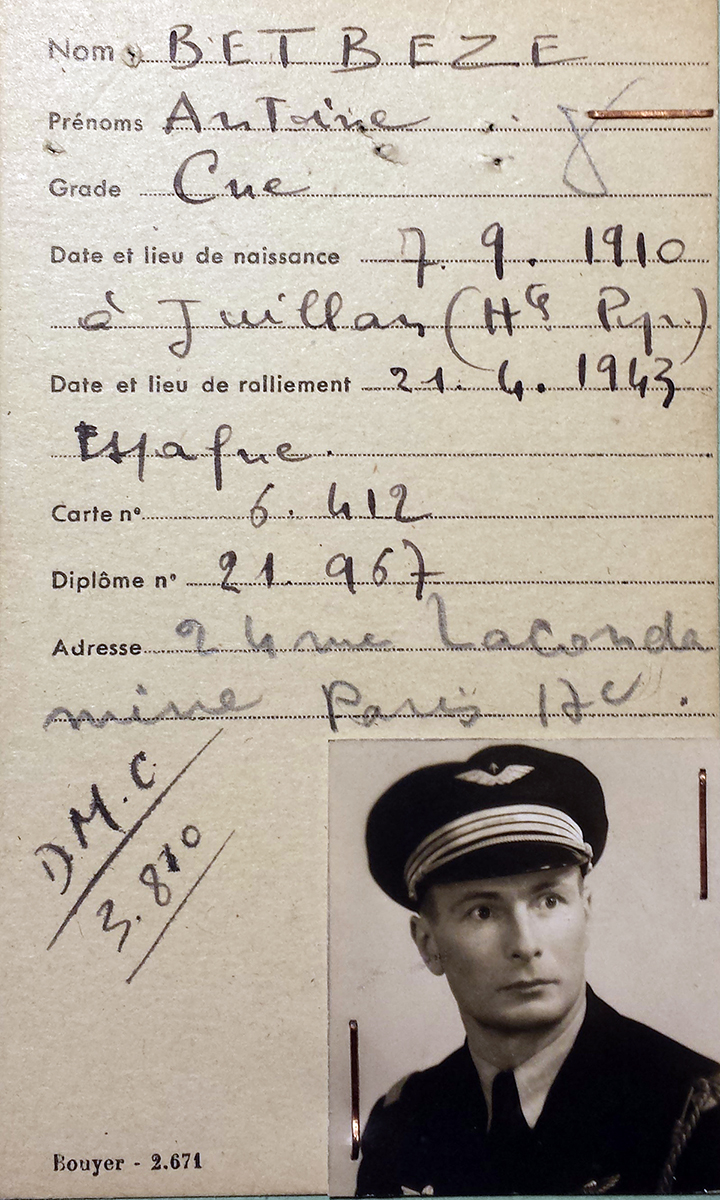 Nom BETBEZE
Prénoms Antoine
Grade Cne
Date et lieu de naissance 7. 9. 1910
à Juillan (Htes Pyr.)
Date et lieu de ralliement 21. 4. 1943
Espagne.
Carte n° 6. 412
Diplôme n° 21. 967
Adresse 24 rue Laconda
mine Paris 17e.
D.M.C
3.810
Bouyer - 2.671